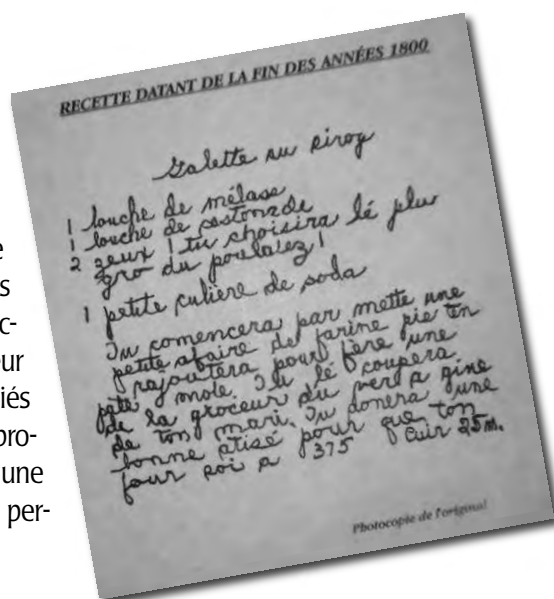 e
s
c-
eur
iés
pro-
une
per-
RECETTE DATANT DE LA FIN DES ANNÉES 1800
Galette au sirog
1 louche de mélase
1 louche de castonade
2 zeux ! tu choisira lé plu
gro du poulaiez !
1 petite culière de soda
Tu comencera par mette une
petite afaire de farine pie t'en
rajoutera pour fère une
pète mole. Tu lé coupera
de la groceur du vere a gine
de ton mari. Tu donera une
bonne atisé pour que ton
four soi a 375 Cuir 25 m.
Photocopie de l'original